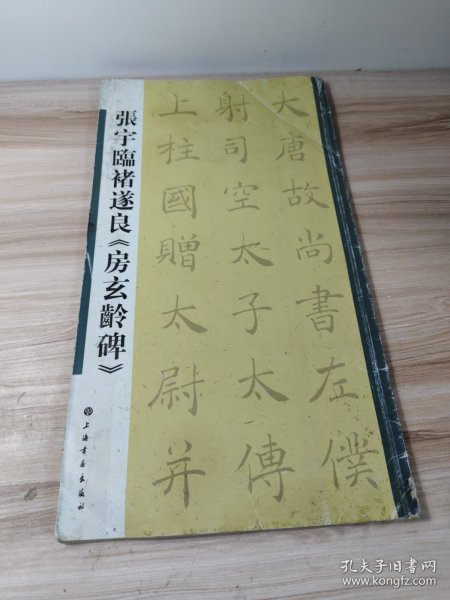 大唐故尚書左僕
射司空太子太傅
上柱國贈太尉并
張宇臨褚遂良《房玄齡碑》
上海書畫出版社
孔夫子旧书网
www.kongfz.com